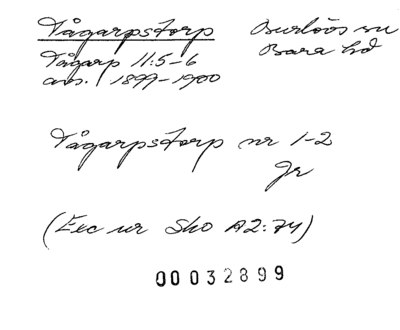 Tågarpstorp Burlövs sn
Tågarp 11:5-6 Bara hd
avs. 1899-1900
Tågarpstorp nr 1-2
Jr
(Exc ur Sko A2:74)
00032899